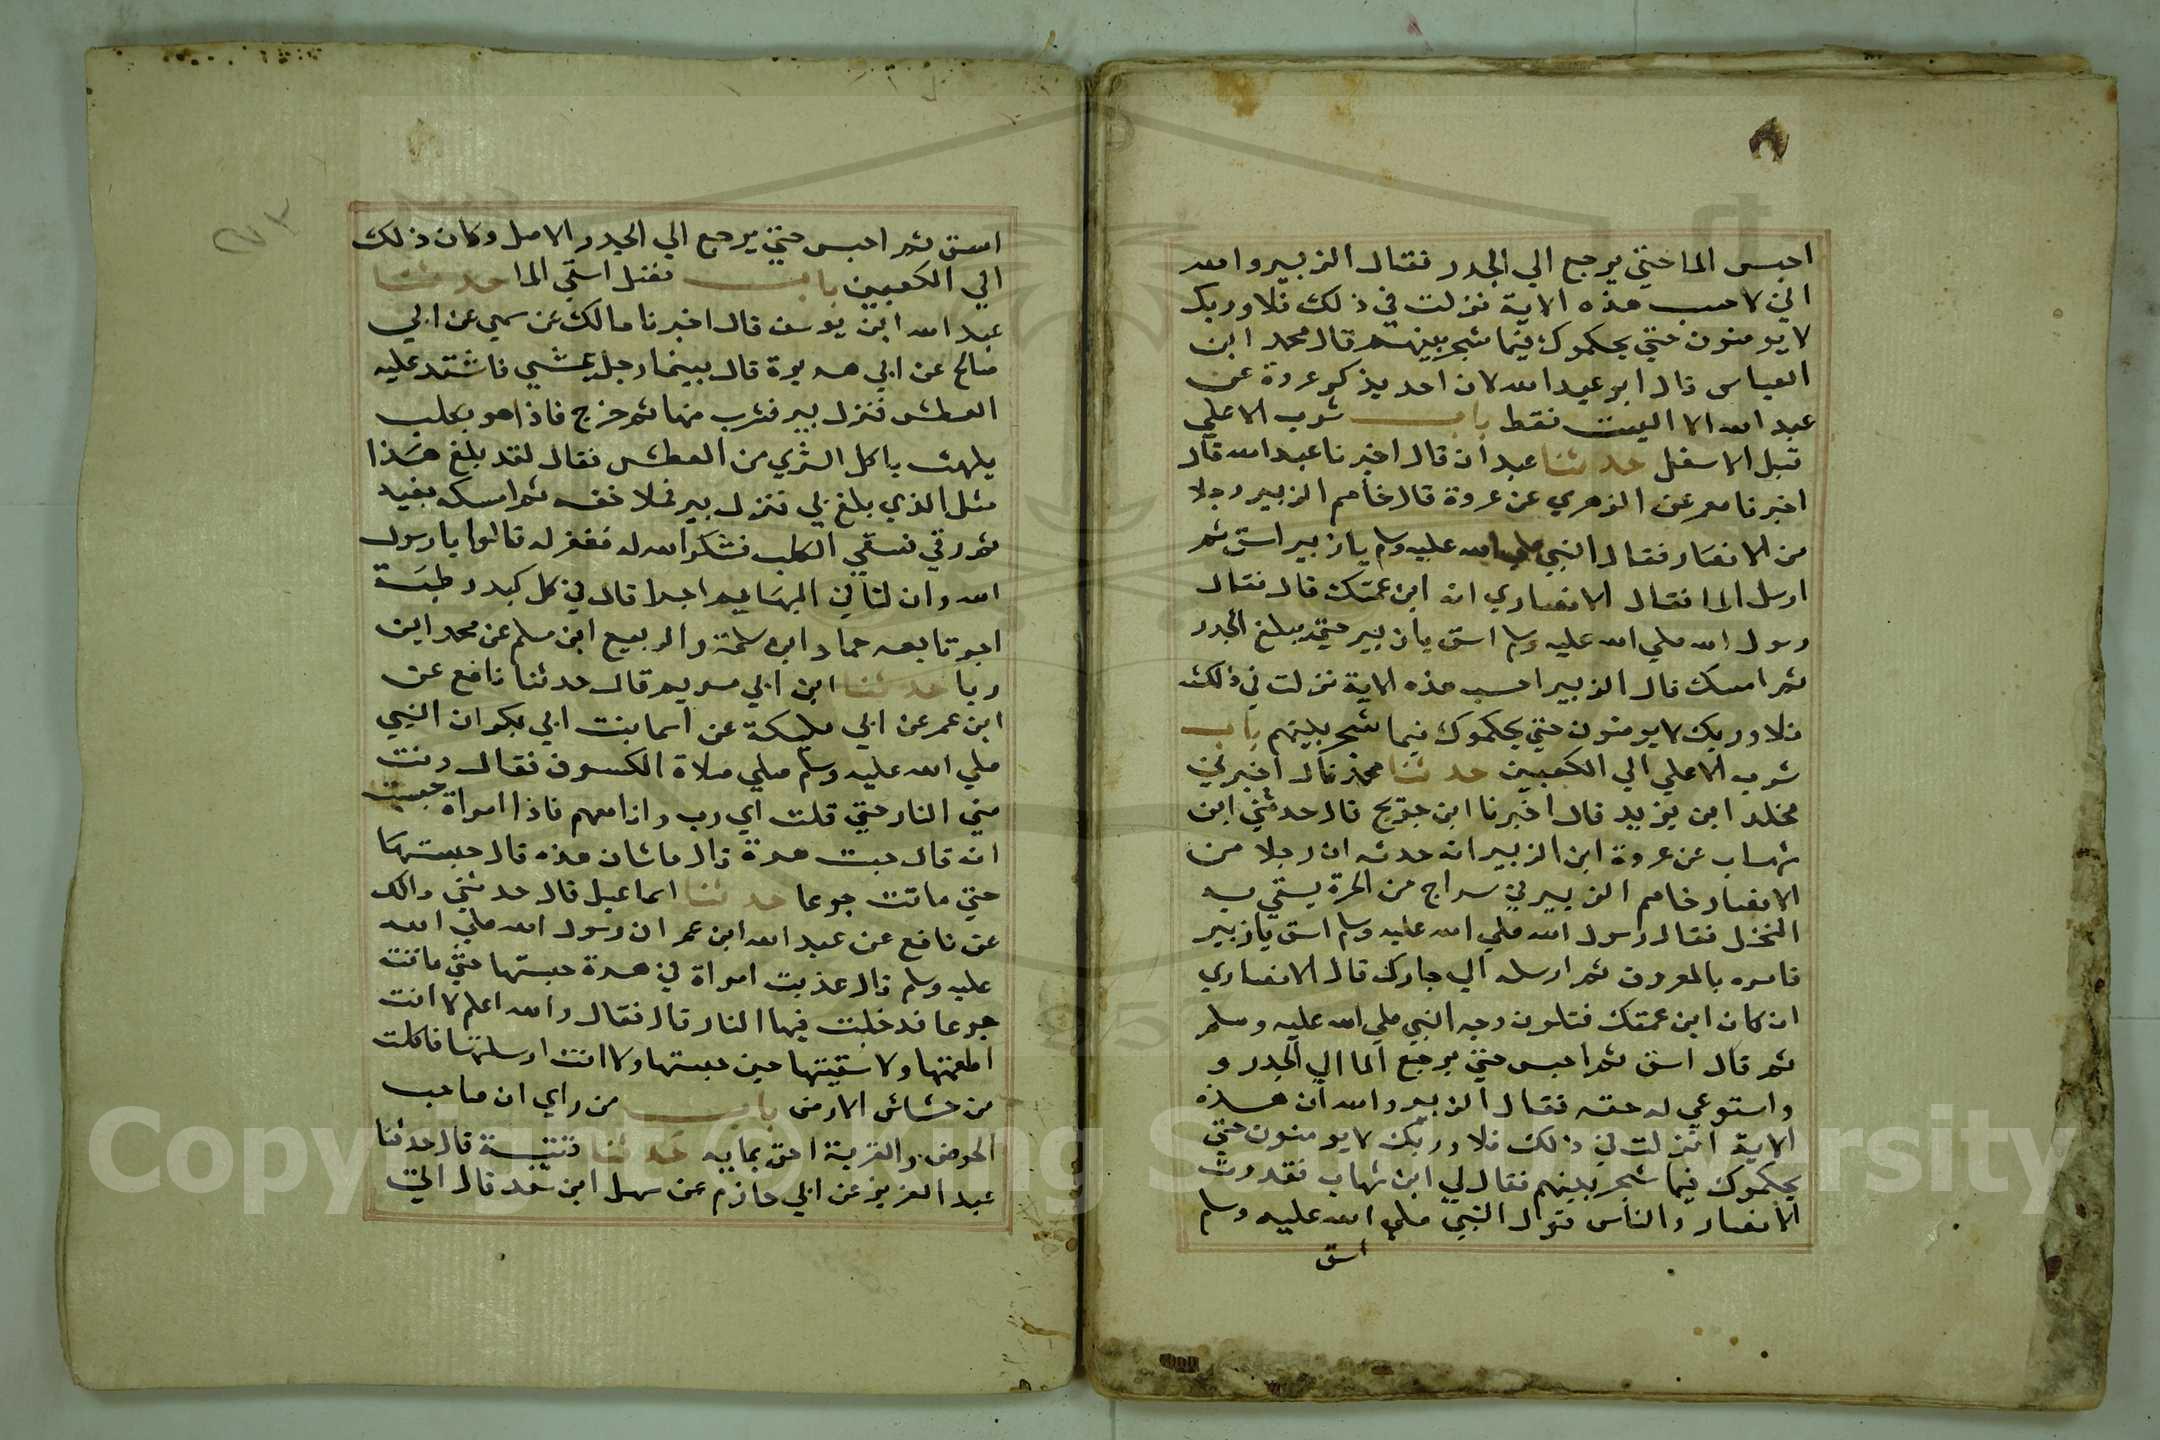 احبس الما حتي يرجع الي الجدر فقال الزبير والله
اني لاحسب هذه الاية نزلت في ذلك فلا وربك
لا يومنون حتي يحكموك فيما شجر بينهم قال محمد ابن
العباس قال ابو عبد الله لان احد يذكر عروة عن
عبد الله الا الليث فقط باب شرب الاعلي
قبل الاسفل حدثنا عبدان قال اخبرنا عبد الله قال
اخبرنا معمر عن الزهري عن عروة قال خاصم الزبير رجلا
من الانصار فقال النبي صلي الله عليه وسلم يا زبير اسق ثم
ارسل الما فقال الانصاري انه ابن عمتك قال فقال
رسول الله صلي الله عليه وسلم اسق يا زبير حتي يبلغ الجدر
ثم امسك قال الزبير احسب هذه الاية نزلت في ذلك
فلا وربك لا يومنون حتي يحكموك فيما شجر بينهم باب
شرب الاعلي الي الكعبين حدثنا محمد قال اخبرني
مخلد ابن يزيد قال اخبرنا ابن جريج قال حدثني ابن
شهاب عن عروة ابن الزبير انه حدثه ان رجلا من
الانصار خاصم الزبير في سراج من الحرة يسقي به
النخل فقال رسول الله صلي الله عليه وسلم اسق يا زبير
فامره بالمعروف ثم ارسله الي جارك قال الانصاري
ان كان ابن عمتك فتلون وجه النبي صلي الله عليه وسلم
ثم قال اسق ثم احبس حتي يرجع الما الي الجدر و
واستوعي له حقه فقال الزبير والله ان هذه
الاية انزلت في ذلك فلا وربك لا يومنون حتي
يحكموك فيما شجر بينهم فقال لي ابن شهاب فقدرت
الانصار والناس قول النبي صلي الله عليه وسلم
اسق
اسق ثم احبس حتي يرجع الي الجدر الاصل وكان ذلك
الي الكعبين باب فضل استي الما حدثنا
عبد الله ابن يوسف قال اخبرنا مالك عن سمي عن ابي
صالح عن ابي هريرة قال بينما رجل يمشي فاشتد عليه
العطش فنزل بير فشرب منها ثم خرج فاذا هو بكلب
يلهث ياكل الثري من العطش فقال لقد بلغ هذا
مثل الذي بلغ بي فنزل بير فملا خفه ثم امسكه بفيه
ثم رقي فسقي الكلب فشكر الله له فغفر له قالوا يا رسول
الله وان لنا في البهايم اجرا قال في كل كبد رطبة
اجر تابعه حماد ابن سلمة والربيع ابن مسلم عن محمد ابن
زيا حدثنا ابن ابي مريم قال حدثنا نافع عن
ابن عمر عن ابي مليكة عن اسما بنت ابي بكر ان النبي
صلي الله عليه وسلم صلي صلاة الكسوف فقال دنت
مني النار حتي قلت اي رب وانا معهم فاذا امراة حسبت
انه قال حبت هرة قال ما شان هذه قال حبستها
حتي ماتت جوعا حدثنا اسماعيل قال حدثني مالك
عن نافع عن عبد الله ابن عمر ان رسول الله صلي الله
عليه وسلم قال عذبت امراة في هرة حبستها حتي ماتت
جوعا فدخلت فيها النار قال فقال والله اعلم لا انت
اطعمتها ولا سقيتها حين حبستها ولا انت ارسلتها فاكلت
من خشاش الارض باب من راي ان صاحب
الحوض والقربة احق بمايه حدثنا قتيبة قال حدثنا
عبد العزيز عن ابي حازم عن سهل ابن سعد قال اتي
Copyright © King Saud University